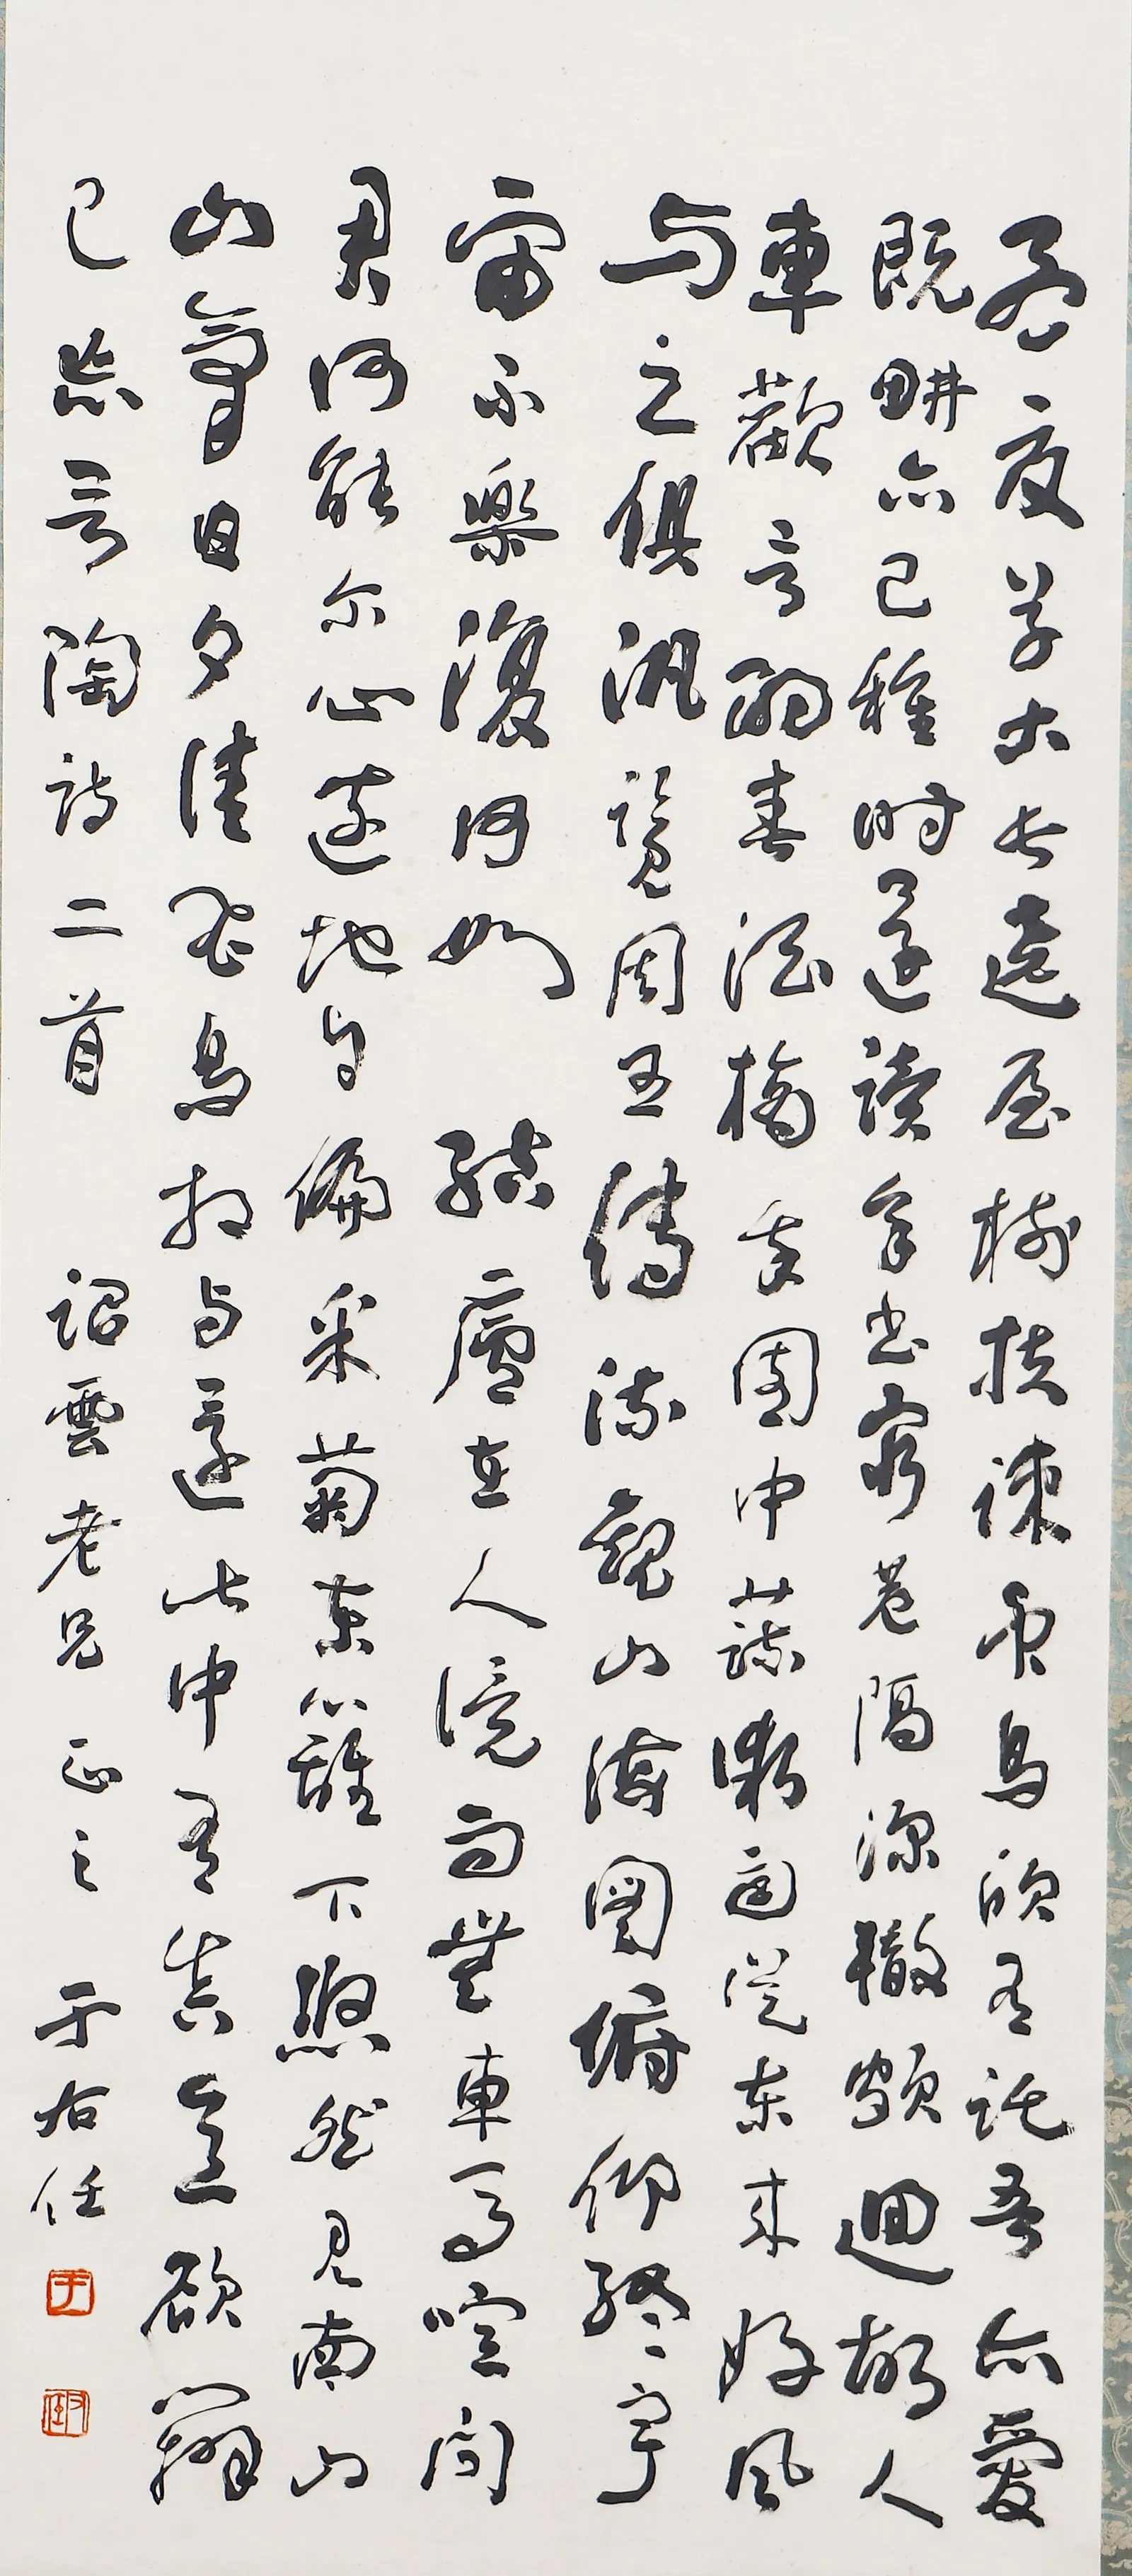 孟夏草木長遶屋樹扶疎衆鳥欣有託吾亦愛
既畊亦已種時還讀我書窮巷隔深轍頗迴故人
車歡言酌春酒摘我園中蔬微雨從東來好風
与之俱汎覽周王傳流觀山海圖俯仰終宇
宙不樂復何如 結廬在人境而無車馬喧問
君何能尔心遠地自偏采菊東籬下悠然見南山
山氣日夕佳飛鳥相与還此中有真意欲辯
已忘言陶詩二首 詔雲老兄正之 于右任
于